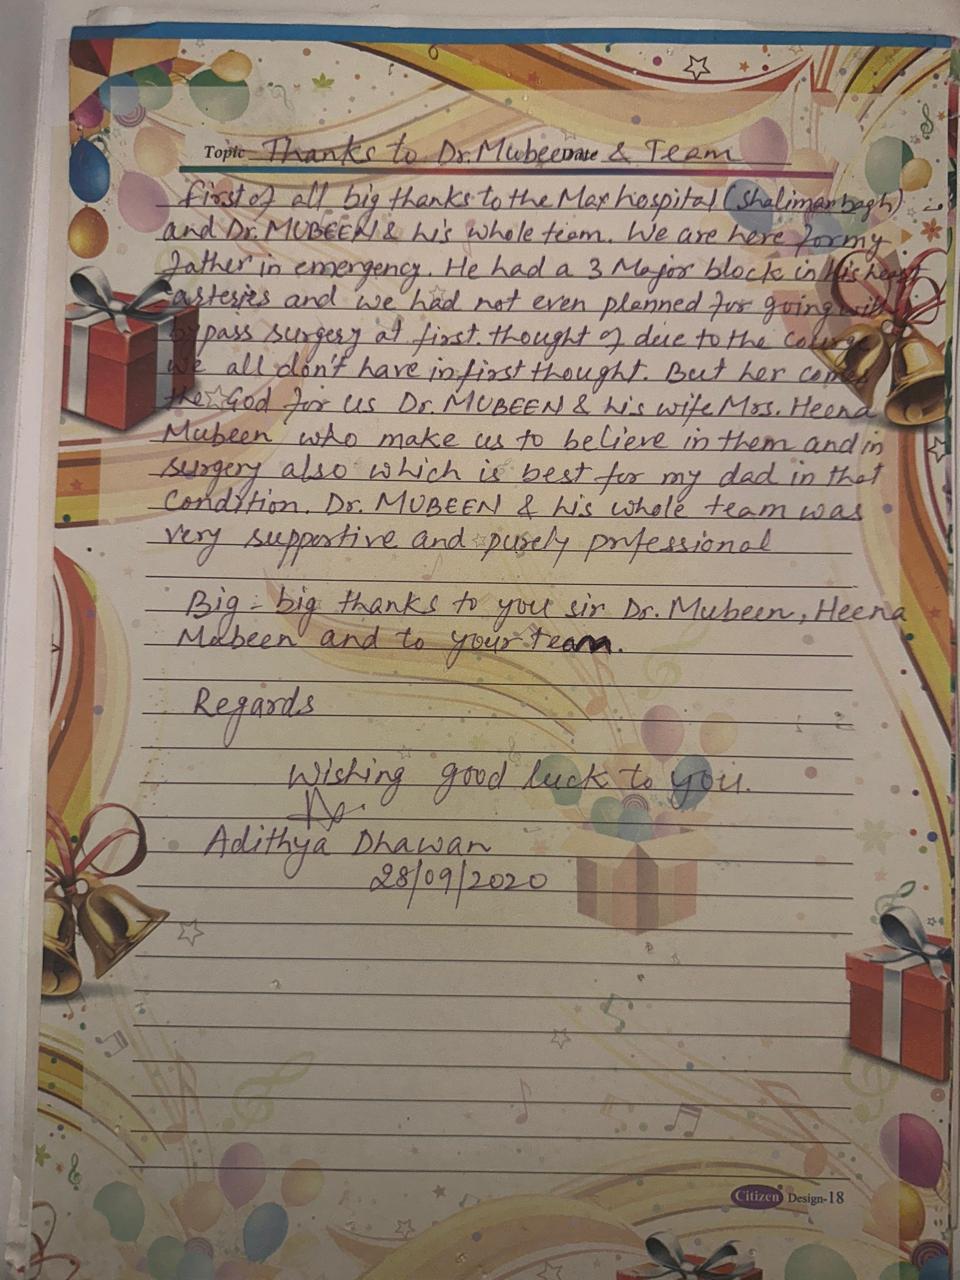 Topic Thanks to Dr. Mubeen Date & Team
first of all big thanks to the Max hospital (Shalimar bagh)
and Dr. MUBEEN & his whole team. We are here for my
father in emergency. He had a 3 Major block in his heart
arteries and we had not even planned for going with
bypass surgery at first. thought of due to the
we all don't have in first thought. But her comes
the God for us Dr. MUBEEN & his wife Mrs. Heena
Mubeen who make us to believe in them and in
surgery also which is best for my dad in that
Condition. Dr. MUBEEN & his whole team was
very supportive and purely professional
Big - big thanks to you sir Dr. Mubeen, Heena
Mubeen and to your team.
Regards
Wishing good luck to you.
Adithya Dhawan
28/09/2020
Citizen Design-18